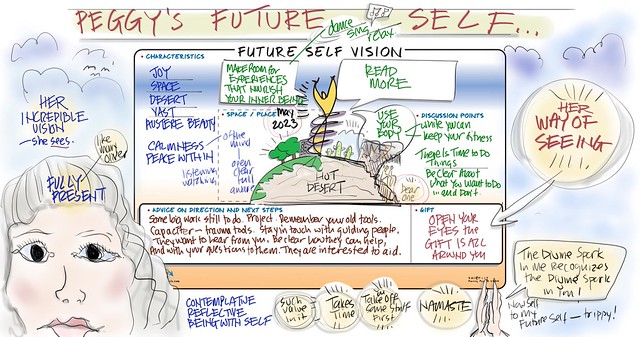 PEGGY'S FUTURE SELF...
dance
sing
relax
FUTURE SELF VISION
• CHARACTERISTICS
JOY
SPACE
DESERT
VAST
AUSTERE BEAUTY
CALMNESS
PEACE WITHIN
MAKE ROOM FOR
EXPERIENCES
THAT NOURISH
YOUR INNER BEING
READ
MORE
• SPACE / PLACE
MAY
2023
of the
mind
listening
watching
open
clear
full
aware
HOT
DESERT
USE
YOUR
BODY
Dear
one
• DISCUSSION POINTS
while you can
keep your fitness
There Is Time to Do
Things
Be Clear About
What You Want to Do
... and Don't.
• ADVICE ON DIRECTION AND NEXT STEPS
Some big work still to do. Project. Remember your old tools.
Capacitar – trauma tools. Stay in touch with guiding people.
They want to hear from you. Be clear how they can help,
And with your questions to them. They are interested to aid.
• GIFT
OPEN YOUR
EYES THE
GIFT IS ALL
AROUND YOU
HER
INCREDIBLE
VISION
– she sees.
like
many others
FULLY
PRESENT
HER
WAY OF
SEEING
CONTEMPLATIVE
REFLECTIVE
BEING WITH SELF
such
value
in it
Takes
Time
Take off
Some Stuff
First
NAMASTE
The Divine Spark
In me Recognizes
the Divine Spark
in You!
Now Self
to my
Future Self – trippy!